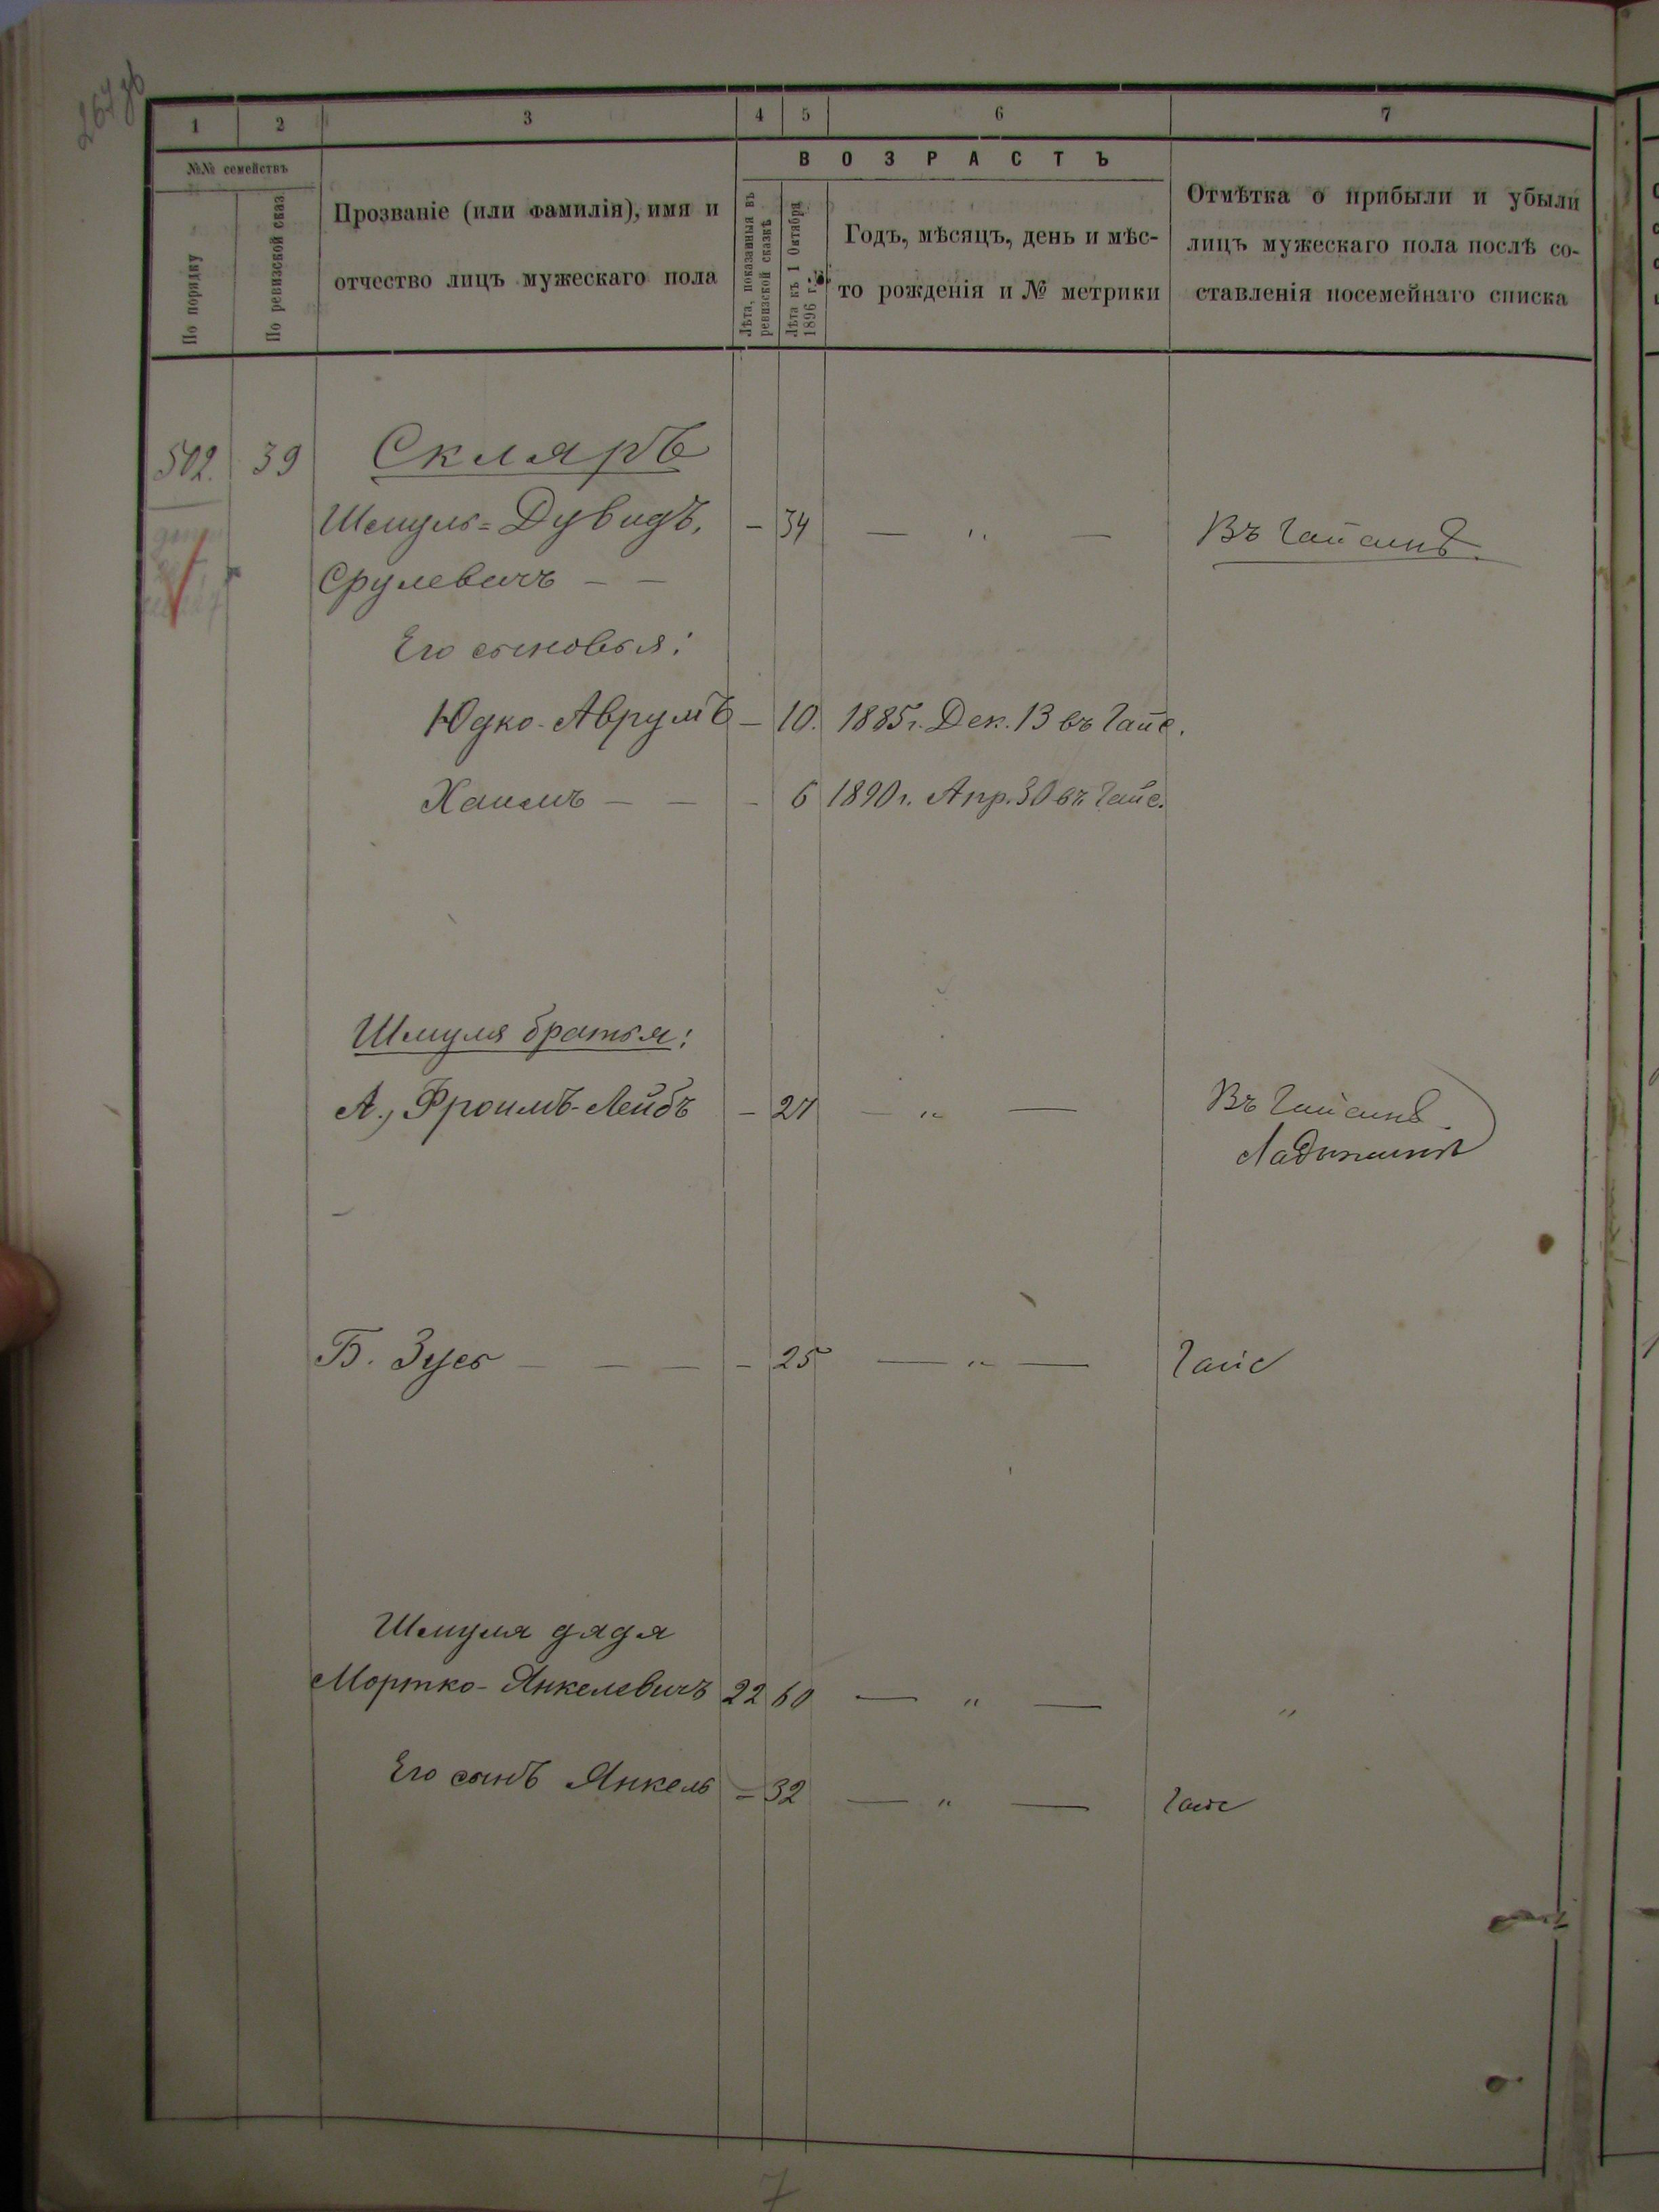 267об
1 2 3 4 5 6 7
№№ семействъ
По порядку
По ревизской сказ
Прозваніе (или фамилія), имя и
отчество лицъ мужескаго пола
ВОЗРАСТЪ
Лѣта, показанныя въ
ревизской сказкѣ
Лѣта къ 1 Октября
1896 г.
Годъ, мѣсяцъ, день и мѣс-
то рожденія и № метрики
Отмѣтка о прибыли и убыли
лицъ мужескаго пола послѣ со-
ставленія посемейнаго списка
502. 39 Скляръ
Шмуль=Дувидъ, – 34 — " — Въ Гайсинѣ.
Срулевичъ – –
Его сыновья:
Юдко-Аврумъ – 10. 1885 г. Дек. 13 въ Гайс.
Хаимъ – – – 6 1890 г. Апр. 30 въ Гайс.
Шмуля братья:
А., Фроимъ-Лейбъ – 27 — " — Въ Гайсинѣ
Ладыжинѣ
Б. Зусь – – – – 25 — " — Гайс
Шмуля дядя
Мортко-Янкелевичъ 22 60 — " — "
Его сынъ Янкель – 32 — " — Гайс
7